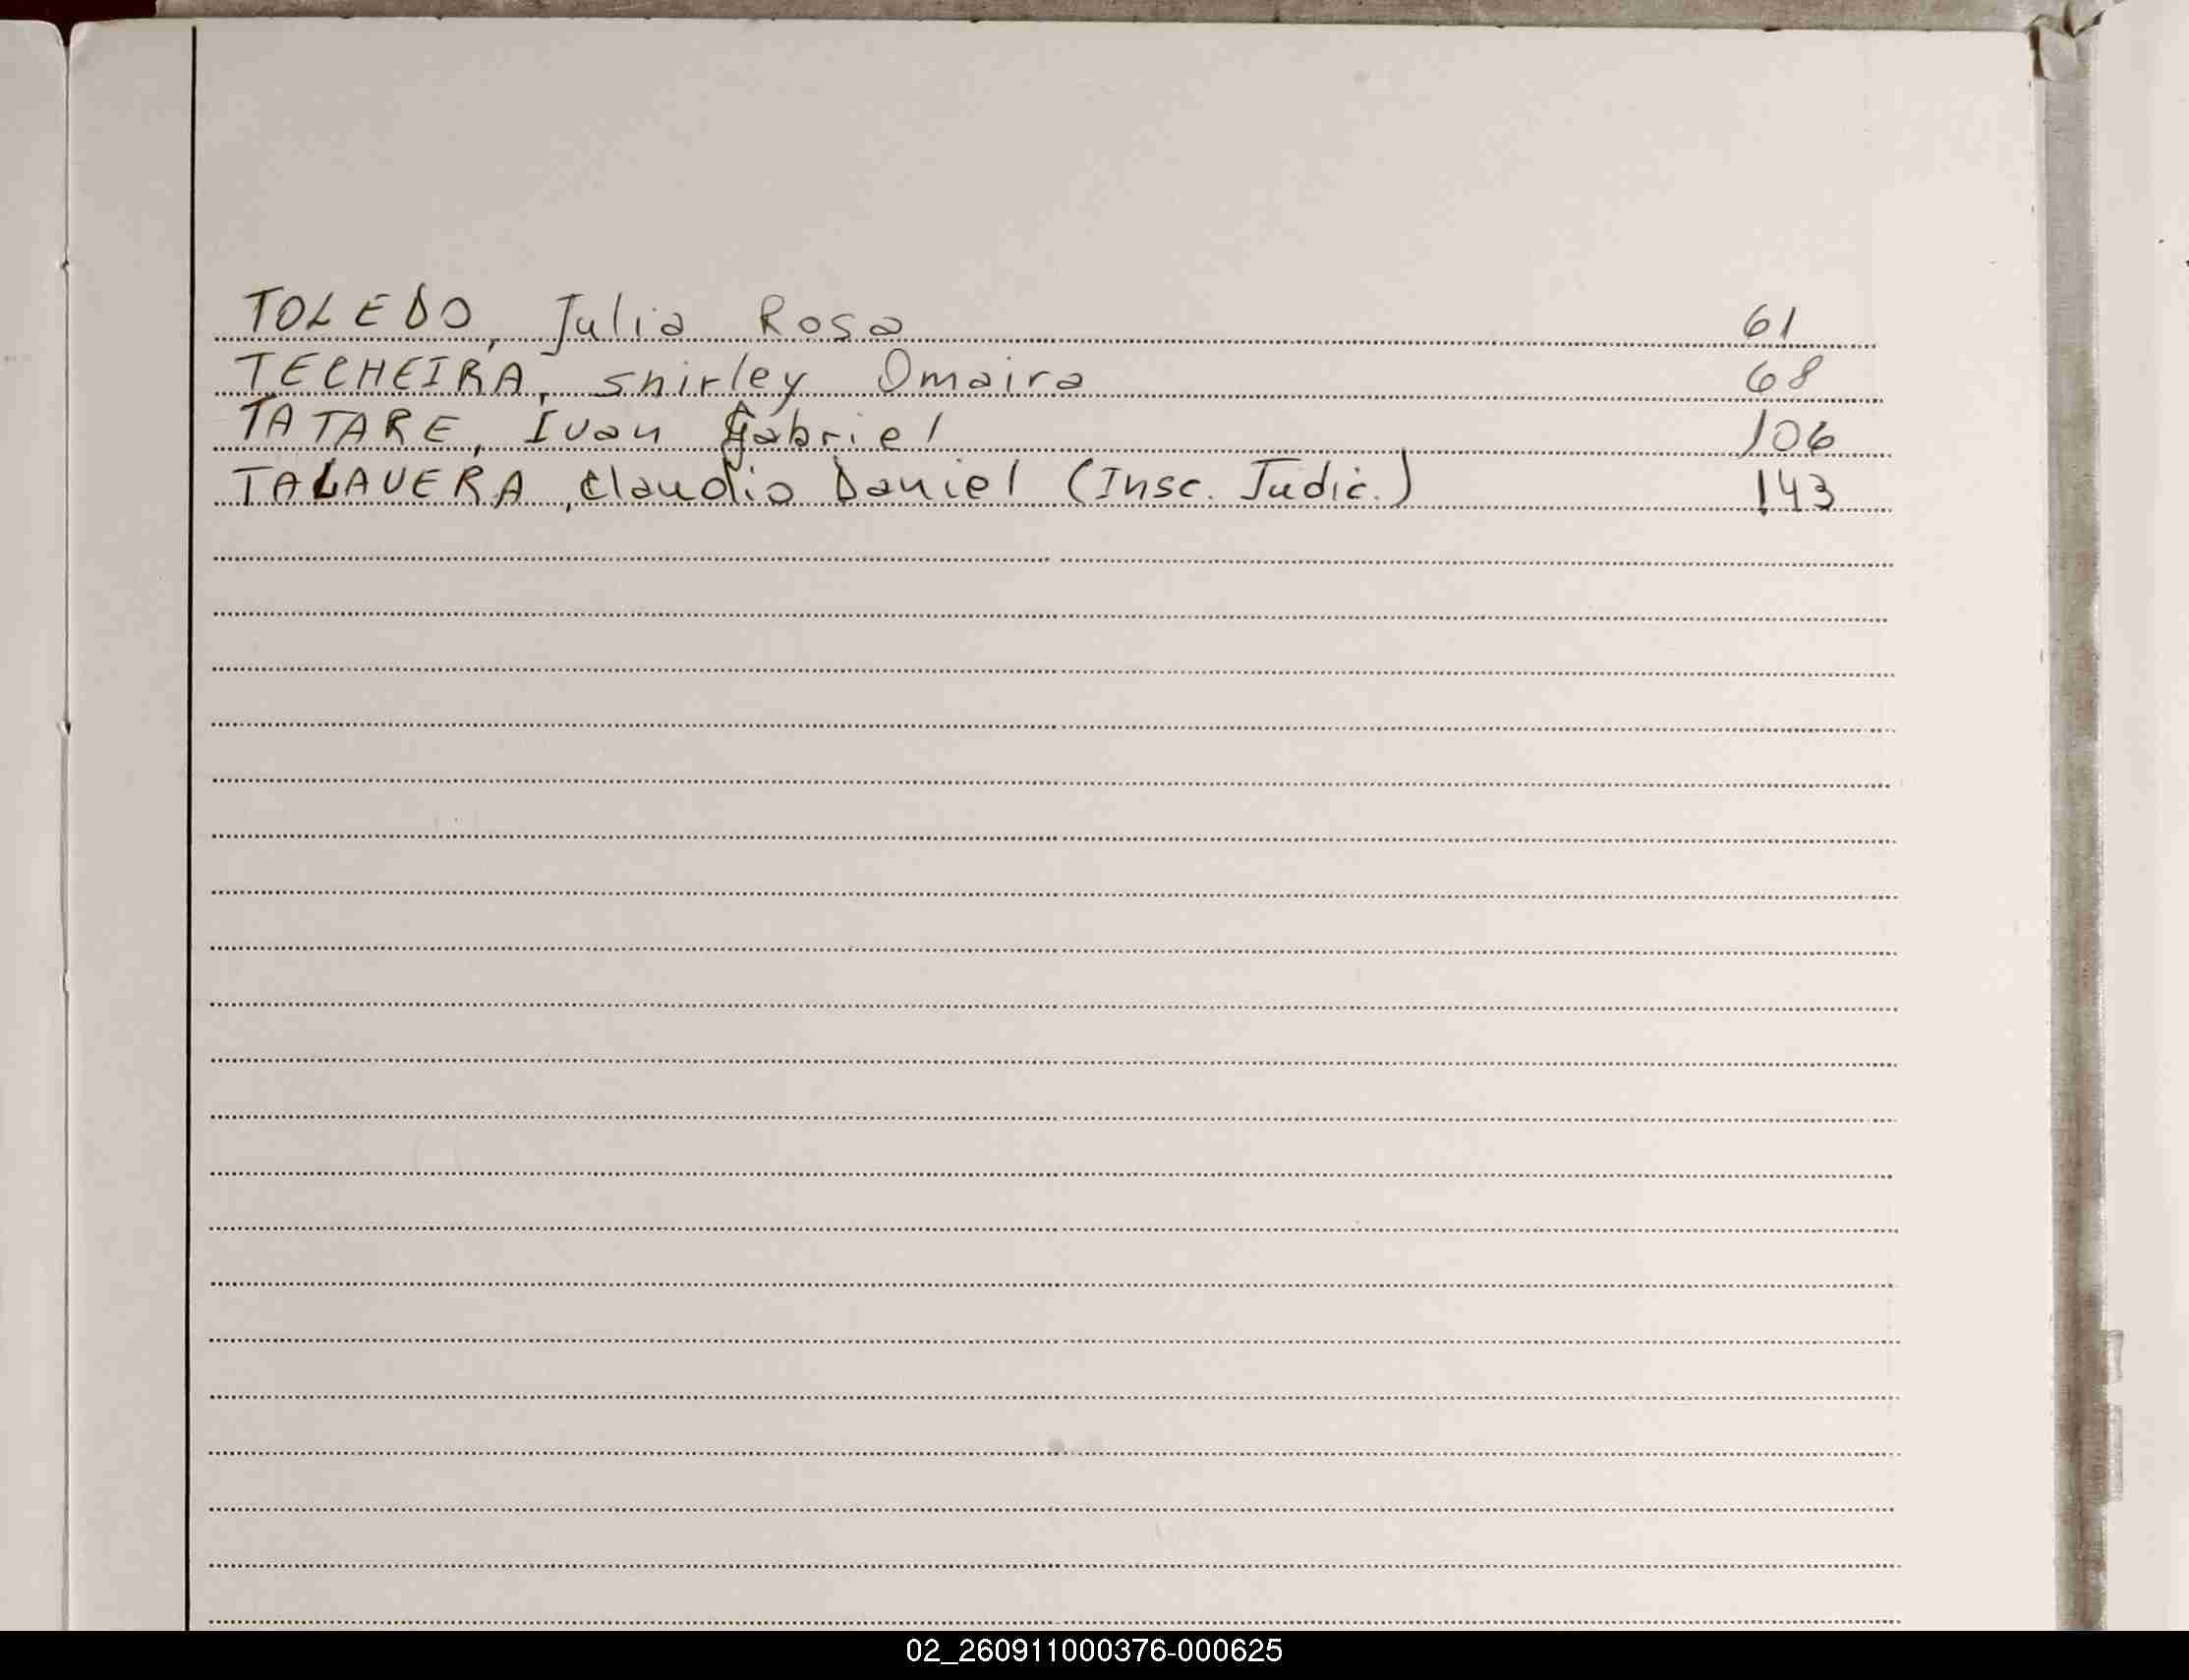 TOLEDO, Julia Rosa 61
TECHEIRA, Shirley Omaira 68
TATARE, Ivan Gabriel 106
TALAVERA, Claudio Daniel (Insc. Judic.) 143
02_260911000376-000625